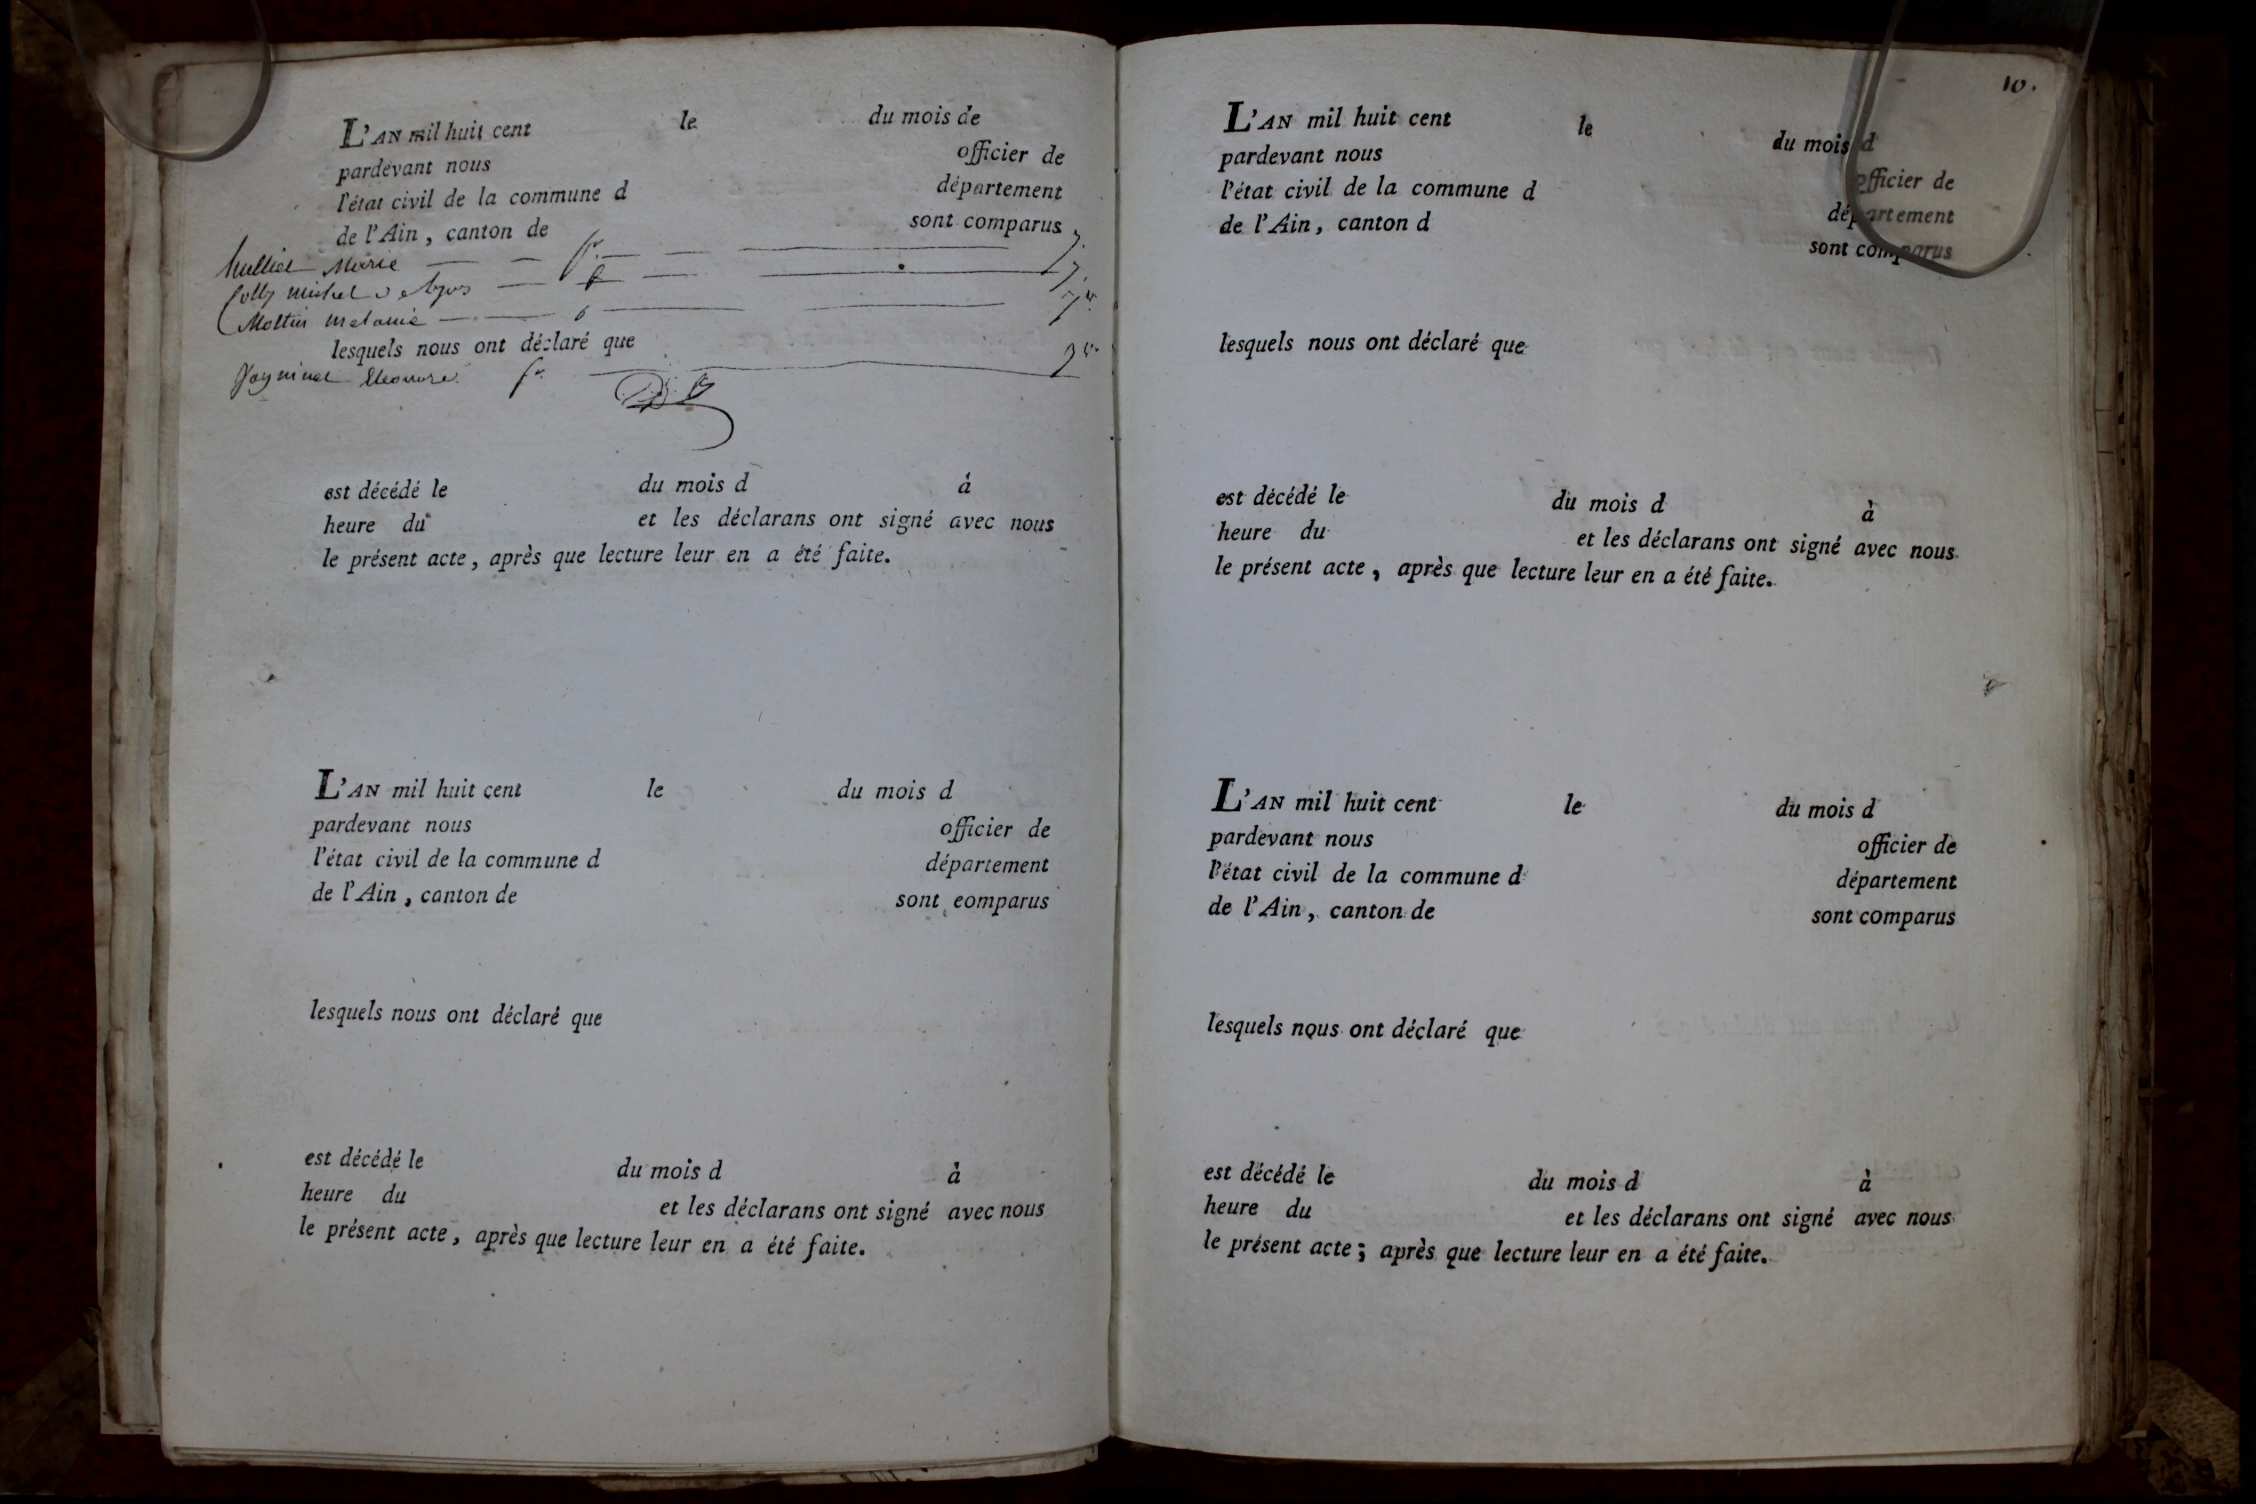 L'AN mil huit cent le du mois de
pardevant nous officier de
l'état civil de la commune d département
de l'Ain, canton de sont comparus
Marie
Colly michel
Mottin melanie
lesquels nous ont déclaré que
Eleonore
est décédé le du mois d à
heure du et les déclarans ont signé avec nous
le présent acte, après que lecture leur en a été faite.
L'AN mil huit cent le du mois d
pardevant nous officier de
l'état civil de la commune d département
de l'Ain, canton de sont eomparus
lesquels nous ont déclaré que
est décédé le du mois d à
heure du et les déclarans ont signé avec nous
le présent acte, après que lecture leur en a été faite.
10.
L'AN mil huit cent le du mois d
pardevant nous officier de
l'état civil de la commune d département
de l'Ain, canton d sont comparus
lesquels nous ont déclaré que
est décédé le du mois d à
heure du et les déclarans ont signé avec nous
le présent acte, après que lecture leur en a été faite.
L'AN mil huit cent le du mois d
pardevant nous officier de
l'état civil de la commune d département
de l'Ain, canton de sont comparus
lesquels nous ont déclaré que
est décédé le du mois d à
heure du et les déclarans ont signé avec nous
le présent acte; après que lecture leur en a été faite.